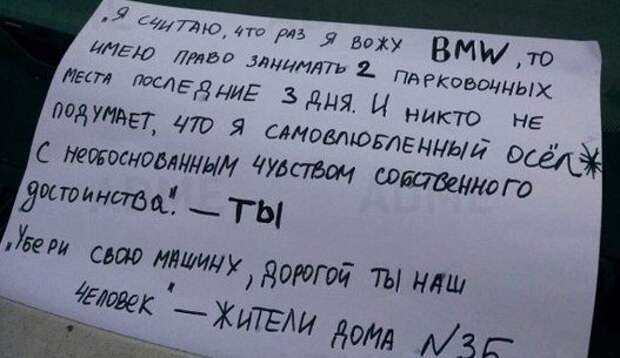 „Я СЧИТАЮ, ЧТО РАЗ Я ВОЖУ BMW, ТО
ИМЕЮ ПРАВО ЗАНИМАТЬ 2 ПАРКОВОЧНЫХ
МЕСТА ПОСЛЕДНИЕ 3 ДНЯ. И НИКТО НЕ
ПОДУМАЕТ, ЧТО Я САМОВЛЮБЛЕННЫЙ ОСЁЛ*
С НЕОБОСНОВАННЫМ ЧУВСТВОМ СОБСТВЕННОГО
ДОСТОИНСТВА." — ТЫ
„УБЕРИ СВОЮ МАШИНУ, ДОРОГОЙ ТЫ НАШ
ЧЕЛОВЕК" — ЖИТЕЛИ ДОМА №35
ADME ADME